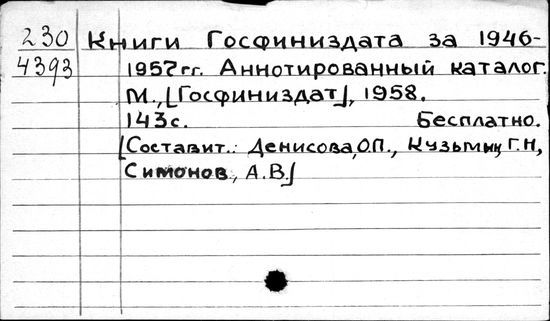 230 Книги Госфиниздата за 1946-
4393 1957гг. Аннотированный каталог.
М., [Госфиниздат], 1958.
143с. Бесплатно.
[Составит.: Денисова, О.П., Кузьмин, Г.Н.,
Симонов, А.В.]